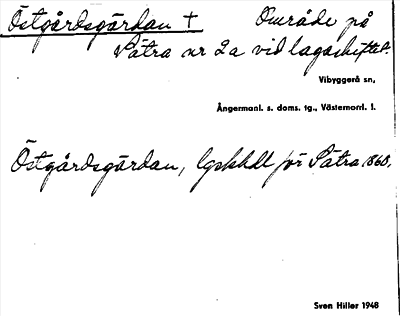 Östgårdsgärdan † Område på
Sätra nr 2a vid lagaskiftet.
Vibyggerå sn,
Ångermanl. s. doms. tg., Västernorrl. l.
Östgårdsgärdan, lgskhdl för Sätra 1868.
Sven Hiller 1948